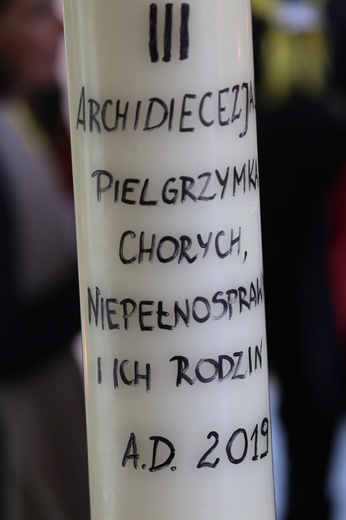 III
ARCHIDIECEZJA
PIELGRZYMKA
CHORYCH,
NIEPEŁNOSPRAW
I ICH RODZIN
A.D. 2019